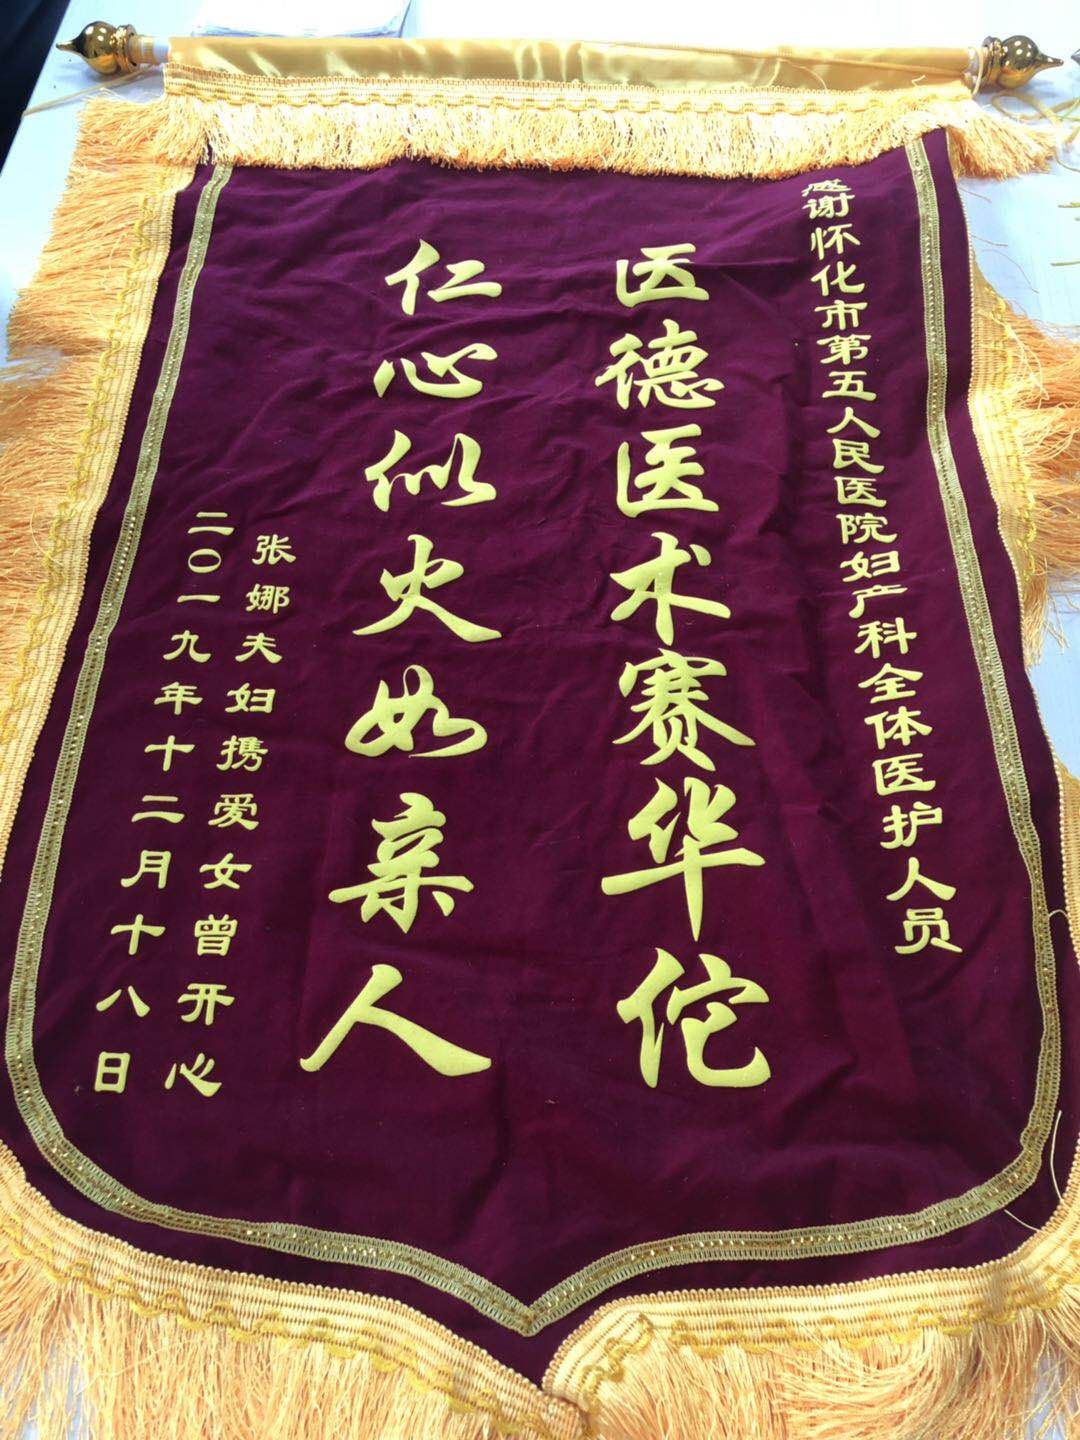 感谢怀化市第五人民医院妇产科全体医护人员
医德医术赛华佗
仁心似火如亲人
张娜夫妇携爱女曾开心
二〇一九年十二月十八日